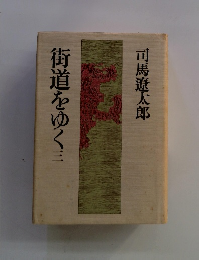 司馬遼太郎
街道をゆく 三